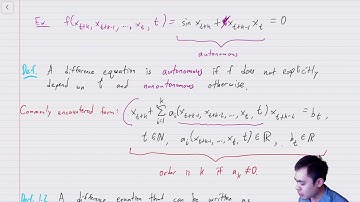 Ex. f(x_{t+k}, x_{t+k-1}, ..., x_t, t) = sin x_{t+k} + x_{t+k-1} x_t = 0
autonomous
Def. A difference equation is autonomous if f does not explicitly
depend on t and nonautonomous otherwise.
Commonly encountered form: x_{t+k} + \sum_{i=1}^{k} a_i(x_{t+k-1}, x_{t+k-2}, ..., x_t, t) x_{t+k-i} = b_t,
t ∈ ℕ, a_i(x_{t+k-1}, ..., x_t, t) ∈ ℝ, b_t ∈ ℝ
order is k if a_k ≠ 0.
Def. 1.2 A difference equation that can be written as